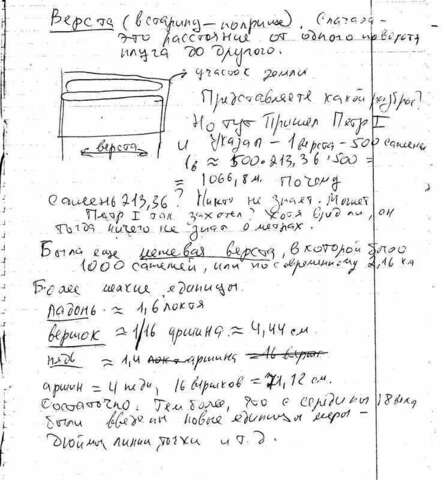 Верста (в старину – поприще). Сначала –
это расстояние от одного поворота
плуга до другого.
участок земли
верста
Представляете какой разброс?
Но тут Пришел Петр I
и Указал – 1 верста – 500 сажень
1в ≈ 500·213,36·500 =
= 1066,8 м. Почему
сажень 213,36? Никто не знает. Может
Петр I так захотел? Хотя он
тогда ничего не знал о метрах.
Была еще межевая верста, в которой было
1000 саженей, или по современному 2,16 км
Более мелкие единицы.
ладонь ≈ 1,6 локтя
вершок ≈ 1/16 аршина ≈ 4,44 см.
пядь ≈ 1,4 аршина = 16 
аршин = 4 пяди, 16 вершков = 71,12 см.
Достаточно. Тем более, что с середины 18 века
были введены новые единицы меры –
Дюймы линии точки и т.д.